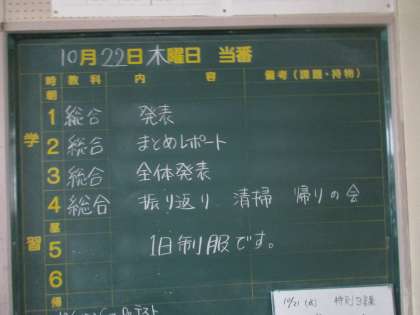 10月22日木曜日 当番
時 教科 内容 備考(課題・持物)
朝
学習
1 総合 発表
2 総合 まとめレポート
3 総合 全体発表
4 総合 振り返り 清掃 帰りの会
昼
5 1日制服です。
6
帰
10/21(水) 特別日課